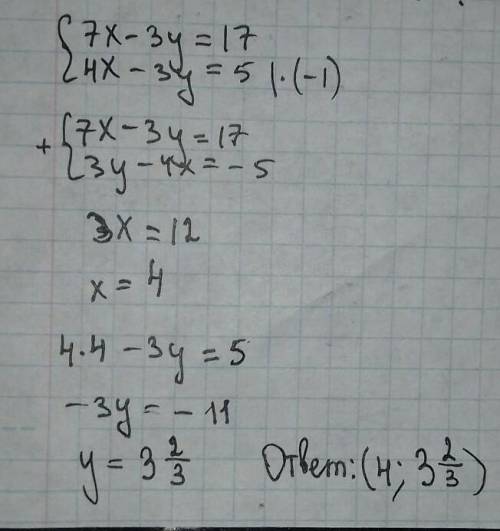 {7x - 3y = 17
{4x - 3y = 5 | · (-1)
+ {7x - 3y = 17
{3y - 4x = - 5
3x = 12
x = 4
4·4 - 3y = 5
-3y = - 11
y = 3 2/3 Ответ: (4; 3 2/3)